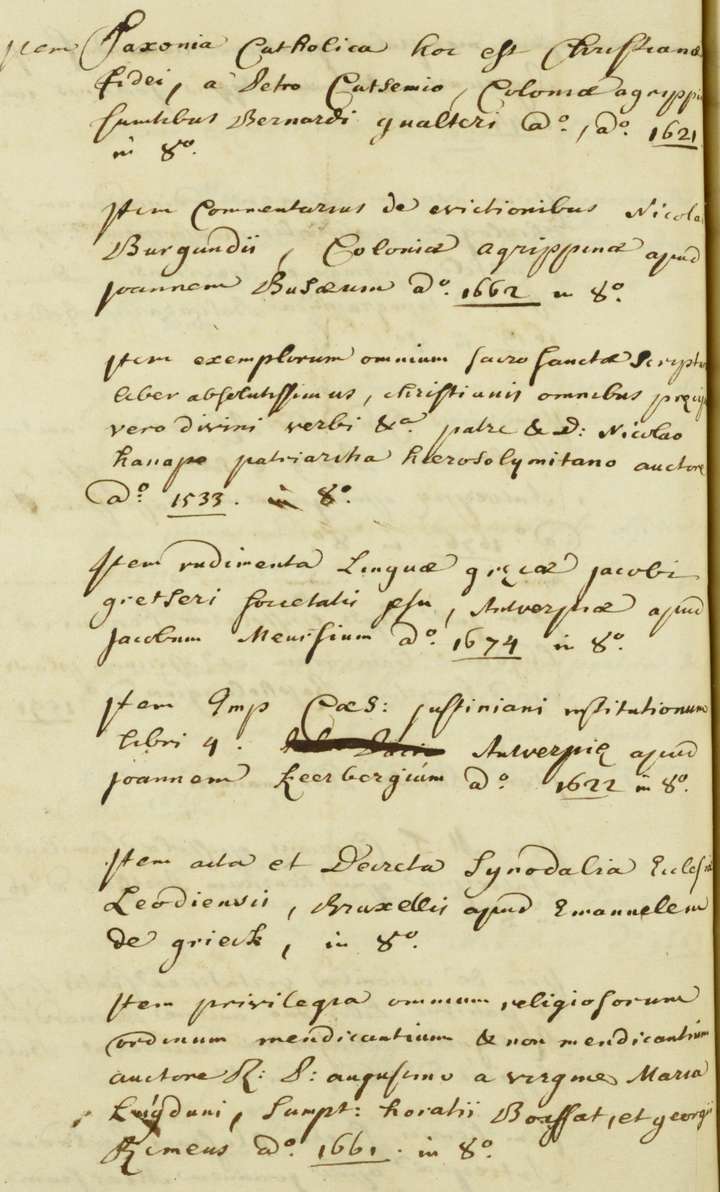 Item Saxonia Catholica hoc est Christianæ
fidei, a Petro Cutsemio, Coloniæ agrippi
sumtibus Bernardi gualteri a°., a°. 1621
in 8°.
Item Commentarius de evictionibus Nicola
Burgundii, Coloniæ agrippinæ apud
joannem Busæum a°. 1662 in 8°.
Item exemplorum omnium sacrosanctæ Script
liber absolutissimus, christianis omnibus pręcip
vero divini verbi &a. patre & D: Nicolao
hanapo patriarcha hierosolymitano auctore
a°. 1533. in 8°.
Item rudimenta Linguæ gręcæ jacobi
gretseri societatis jesu, Antverpiæ apud
jacobum Meursium a°. 1674 in 8°.
Item Imp Cæs: justiniani institutionum
libri 4. Antverpię apud
joannem Keerbergium a°. 1622 in 8°.
Item acta et Decreta Synodalia Eccles
Leodiensis, Bruxellis apud Emanuelem
de grieck, in 8°.
Item privilegia omnium religiosorum
ordinum mendicantium & non mendicantium
auctore R: P: augustino a virgine Maria
Lugduni, Sumpt: horatii Boissat, et georgii
Remeus a°. 1661. in 8°.